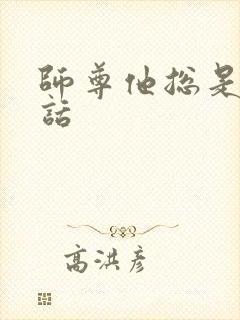 師尊他總是
話
高洪彥